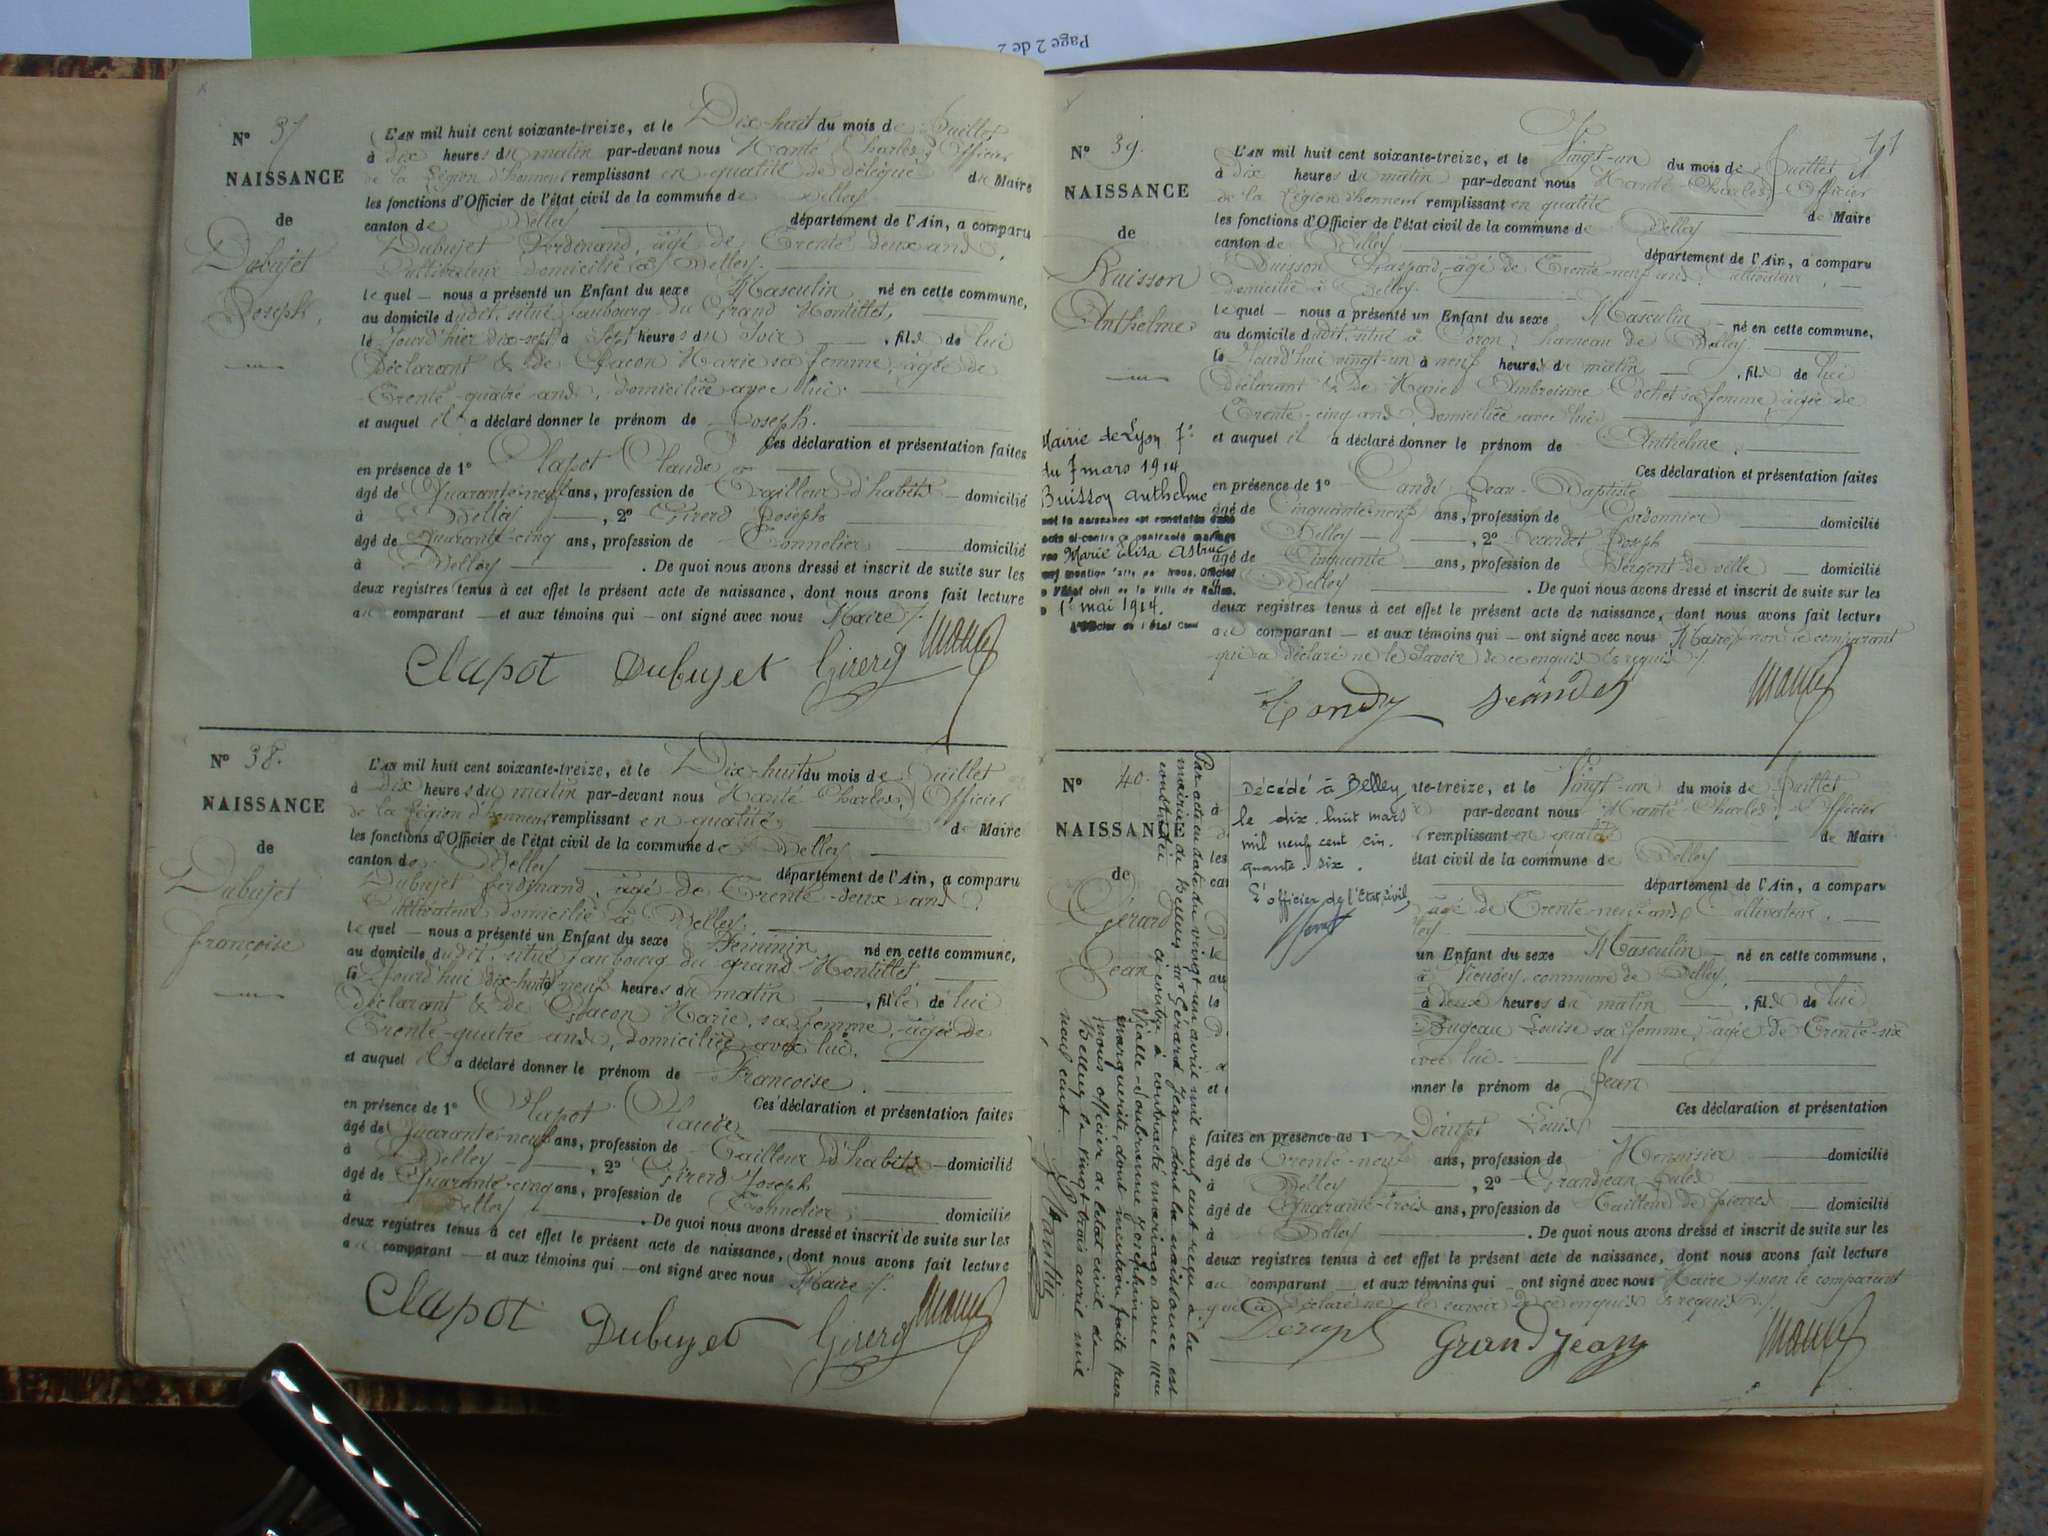 Page 2 de 2
N° 37
NAISSANCE
de
Dubujet
Joseph,
L'AN mil huit cent soixante-treize, et le Dix-huit du mois de Juillet
à dix heures du matin par-devant nous Charles, Officier
de la Légion d'honneur remplissant en qualité de délégué du Maire
les fonctions d'Officier de l'état civil de la commune de Belley
canton de Belley département de l'Ain, a comparu
Dubujet Ferdinand, âgé de Trente deux ans,
Cultivateur domicilié à Belley.
lequel nous a présenté un Enfant du sexe Masculin né en cette commune,
au domicile dudit, situé faubourg du Grand
le Jourd'hier dix-sept à Sept heures du Soir, fils de lui
Déclarant & de Marie sa femme, âgée de
Trente-quatre ans, domiciliée avec lui.
et auquel il a déclaré donner le prénom de Joseph.
Ces déclaration et présentation faites
en présence de 1° Clapot Claude
âgé de Quarante-neuf ans, profession de Tailleur d'habits domicilié
à Belley, 2° Girerd Joseph
âgé de Quarante-cinq ans, profession de Tonnelier domicilié
à Belley. De quoi nous avons dressé et inscrit de suite sur les
deux registres tenus à cet effet le présent acte de naissance, dont nous avons fait lecture
au comparant et aux témoins qui ont signé avec nous Maire /.
Clapot Dubujet Girerd
N° 38.
NAISSANCE
de
Dubujet
françoise
L'AN mil huit cent soixante-treize, et le Dix-huit du mois de Juillet
à dix heures du matin par-devant nous Charles, Officier
de la Légion d'honneur remplissant en qualité de Maire
les fonctions d'Officier de l'état civil de la commune de Belley
canton de Belley département de l'Ain, a comparu
Dubujet ferdinand, âgé de Trente-deux ans
Cultivateur domicilié à Belley.
lequel nous a présenté un Enfant du sexe Féminin né en cette commune,
au domicile dudit, situé faubourg du grand
le Jourd'hui dix-huit à neuf heures du matin, fille de lui
Déclarant & de Marie, sa femme, âgée de
Trente-quatre ans, domiciliée avec lui.
et auquel il a déclaré donner le prénom de Françoise.
Ces déclaration et présentation faites
en présence de 1° Clapot Claude
âgé de Quarante-neuf ans, profession de Tailleur d'habits domicilié
à Belley, 2° Girerd Joseph
âgé de Quarante-cinq ans, profession de Tonnelier domicilié
à Belley. De quoi nous avons dressé et inscrit de suite sur les
deux registres tenus à cet effet le présent acte de naissance, dont nous avons fait lecture
au comparant et aux témoins qui ont signé avec nous Maire /.
Clapot Dubujet Girerd
N° 39.
NAISSANCE
de
Buisson
Anthelme
Mairie de Lyon 7e
du 7 mars 1914
Buisson Anthelme
dont la naissance est constatée dans
acte ci-contre a contracté mariage
Marie Elisa Astruc
mention faite par nous, Officier
de l'état civil de la Ville de Belley
1er mai 1914.
L'Officier de l'état civil
L'AN mil huit cent soixante-treize, et le Vingt-un du mois de Juillet
à dix heures du matin par-devant nous Charles, Officier
de la Légion d'honneur remplissant en qualité de Maire
les fonctions d'Officier de l'état civil de la commune de Belley
canton de Belley département de l'Ain, a comparu
Buisson Gaspard, âgé de Trente-neuf ans, Cultivateur,
domicilié à Belley.
lequel nous a présenté un Enfant du sexe Masculin né en cette commune,
au domicile dudit, situé à Coron, hameau de Belley
le Jourd'hui vingt-un à neuf heures du matin, fils de lui
déclarant & de Marie Ambroisine Cochet sa femme, âgée de
Trente-cinq ans, domiciliée avec lui
et auquel il a déclaré donner le prénom de Anthelme.
Ces déclaration et présentation faites
en présence de 1° Jean-Baptiste
âgé de Cinquante-neuf ans, profession de Cordonnier domicilié
Belley, 2° Joseph
âgé de Cinquante ans, profession de Sergent de ville domicilié
à Belley. De quoi nous avons dressé et inscrit de suite sur les
deux registres tenus à cet effet le présent acte de naissance, dont nous avons fait lecture
au comparant et aux témoins qui ont signé avec nous Maire, non le comparant
qui a déclaré ne le savoir de ce enquis & requis /.
N° 40.
NAISSANCE
de
Gérard
Jean
Par acte en date du vingt un avril mil neuf cent reçu à la
mairie de Belley Mr Gérard Jean dont la naissance est
constatée ci-contre a contracté mariage avec Mme
Josephine
marguerite, dont mention faite par
nous officier de l'état civil de
Belley le vingt trois avril mil
neuf cent.
Décédé à Belley
le dix-huit mars
mil neuf cent cin-
quante-six.
L'officier de l'Etat Civil,
te-treize, et le Vingt-un du mois de Juillet
par-devant nous Charles, Officier
remplissant en qualité de Maire
état civil de la commune de Belley
département de l'Ain, a comparu
âgé de Trente-neuf ans, Cultivateur,
un Enfant du sexe Masculin né en cette commune,
à commune de Belley,
à deux heures du matin, fils de lui
Bugeau Louise sa femme, âgée de Trente-six
avec lui.
nner le prénom de Jean
Ces déclaration et présentation
faites en présence de 1° Louis
âgé de Trente-neuf ans, profession de Menuisier domicilié
à Belley, 2° Grandjean Jules
âgé de Quarante-trois ans, profession de Tailleur de pierres domicilié
à Belley. De quoi nous avons dressé et inscrit de suite sur les
deux registres tenus à cet effet le présent acte de naissance, dont nous avons fait lecture
au comparant et aux témoins qui ont signé avec nous Maire, non le comparant
qui a déclaré ne le savoir de ce enquis & requis /.
Grandjean